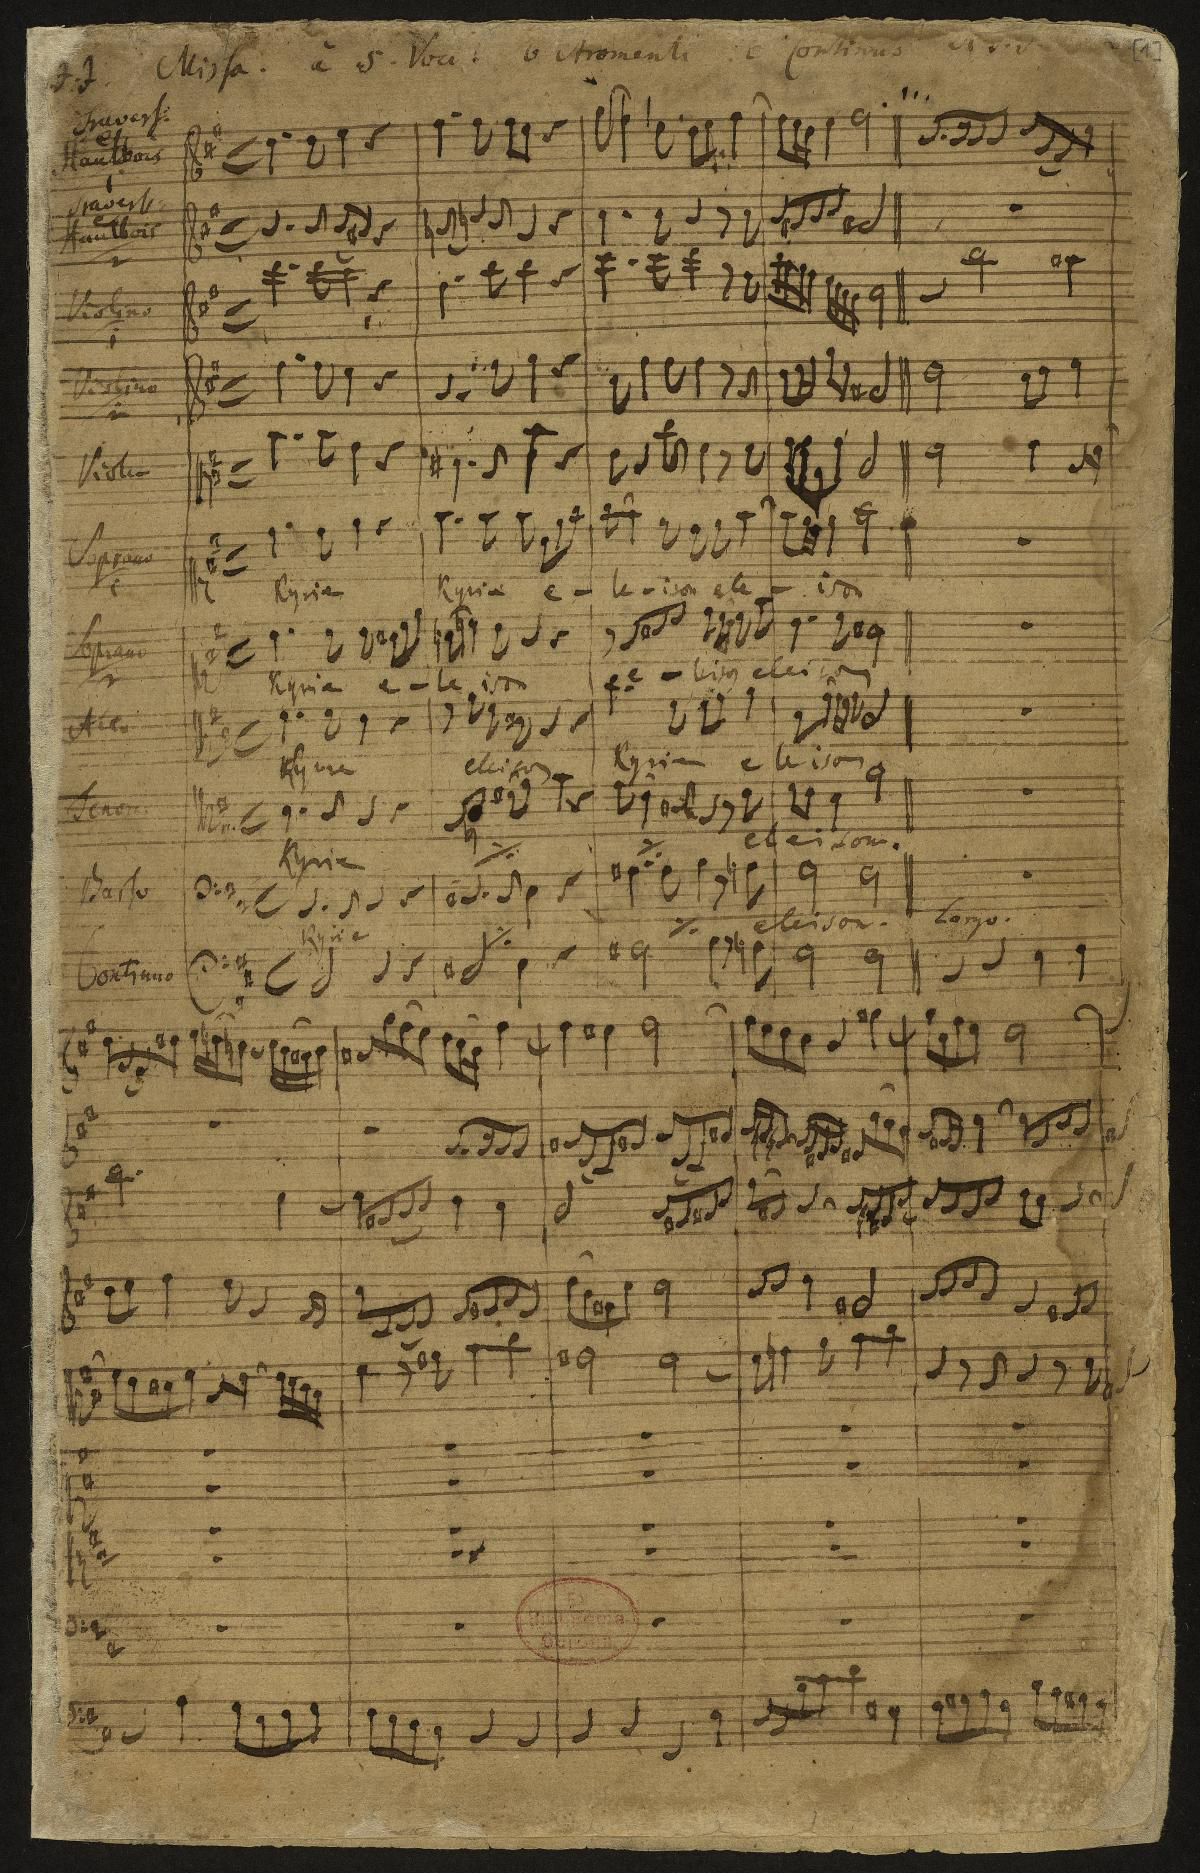 J. J. Missa. à 5. Voci. 6 stromenti e Continuo
[1]
Travers:
et
Hautbois
1
Travers:
e
Hautbois
2
Violino
1
Violino
2
Viola
Soprano
1
Kyrie Kyrie e - le - ison ele - ison
Soprano
2
Kyrie e - le ison e - leison eleison
Alto
Kyrie eleison Kyrie eleison
Tenor
Kyrie ⁒ ⁒ eleison.
Basso
Kyrie ⁒ ⁒ eleison. Largo.
Continuo